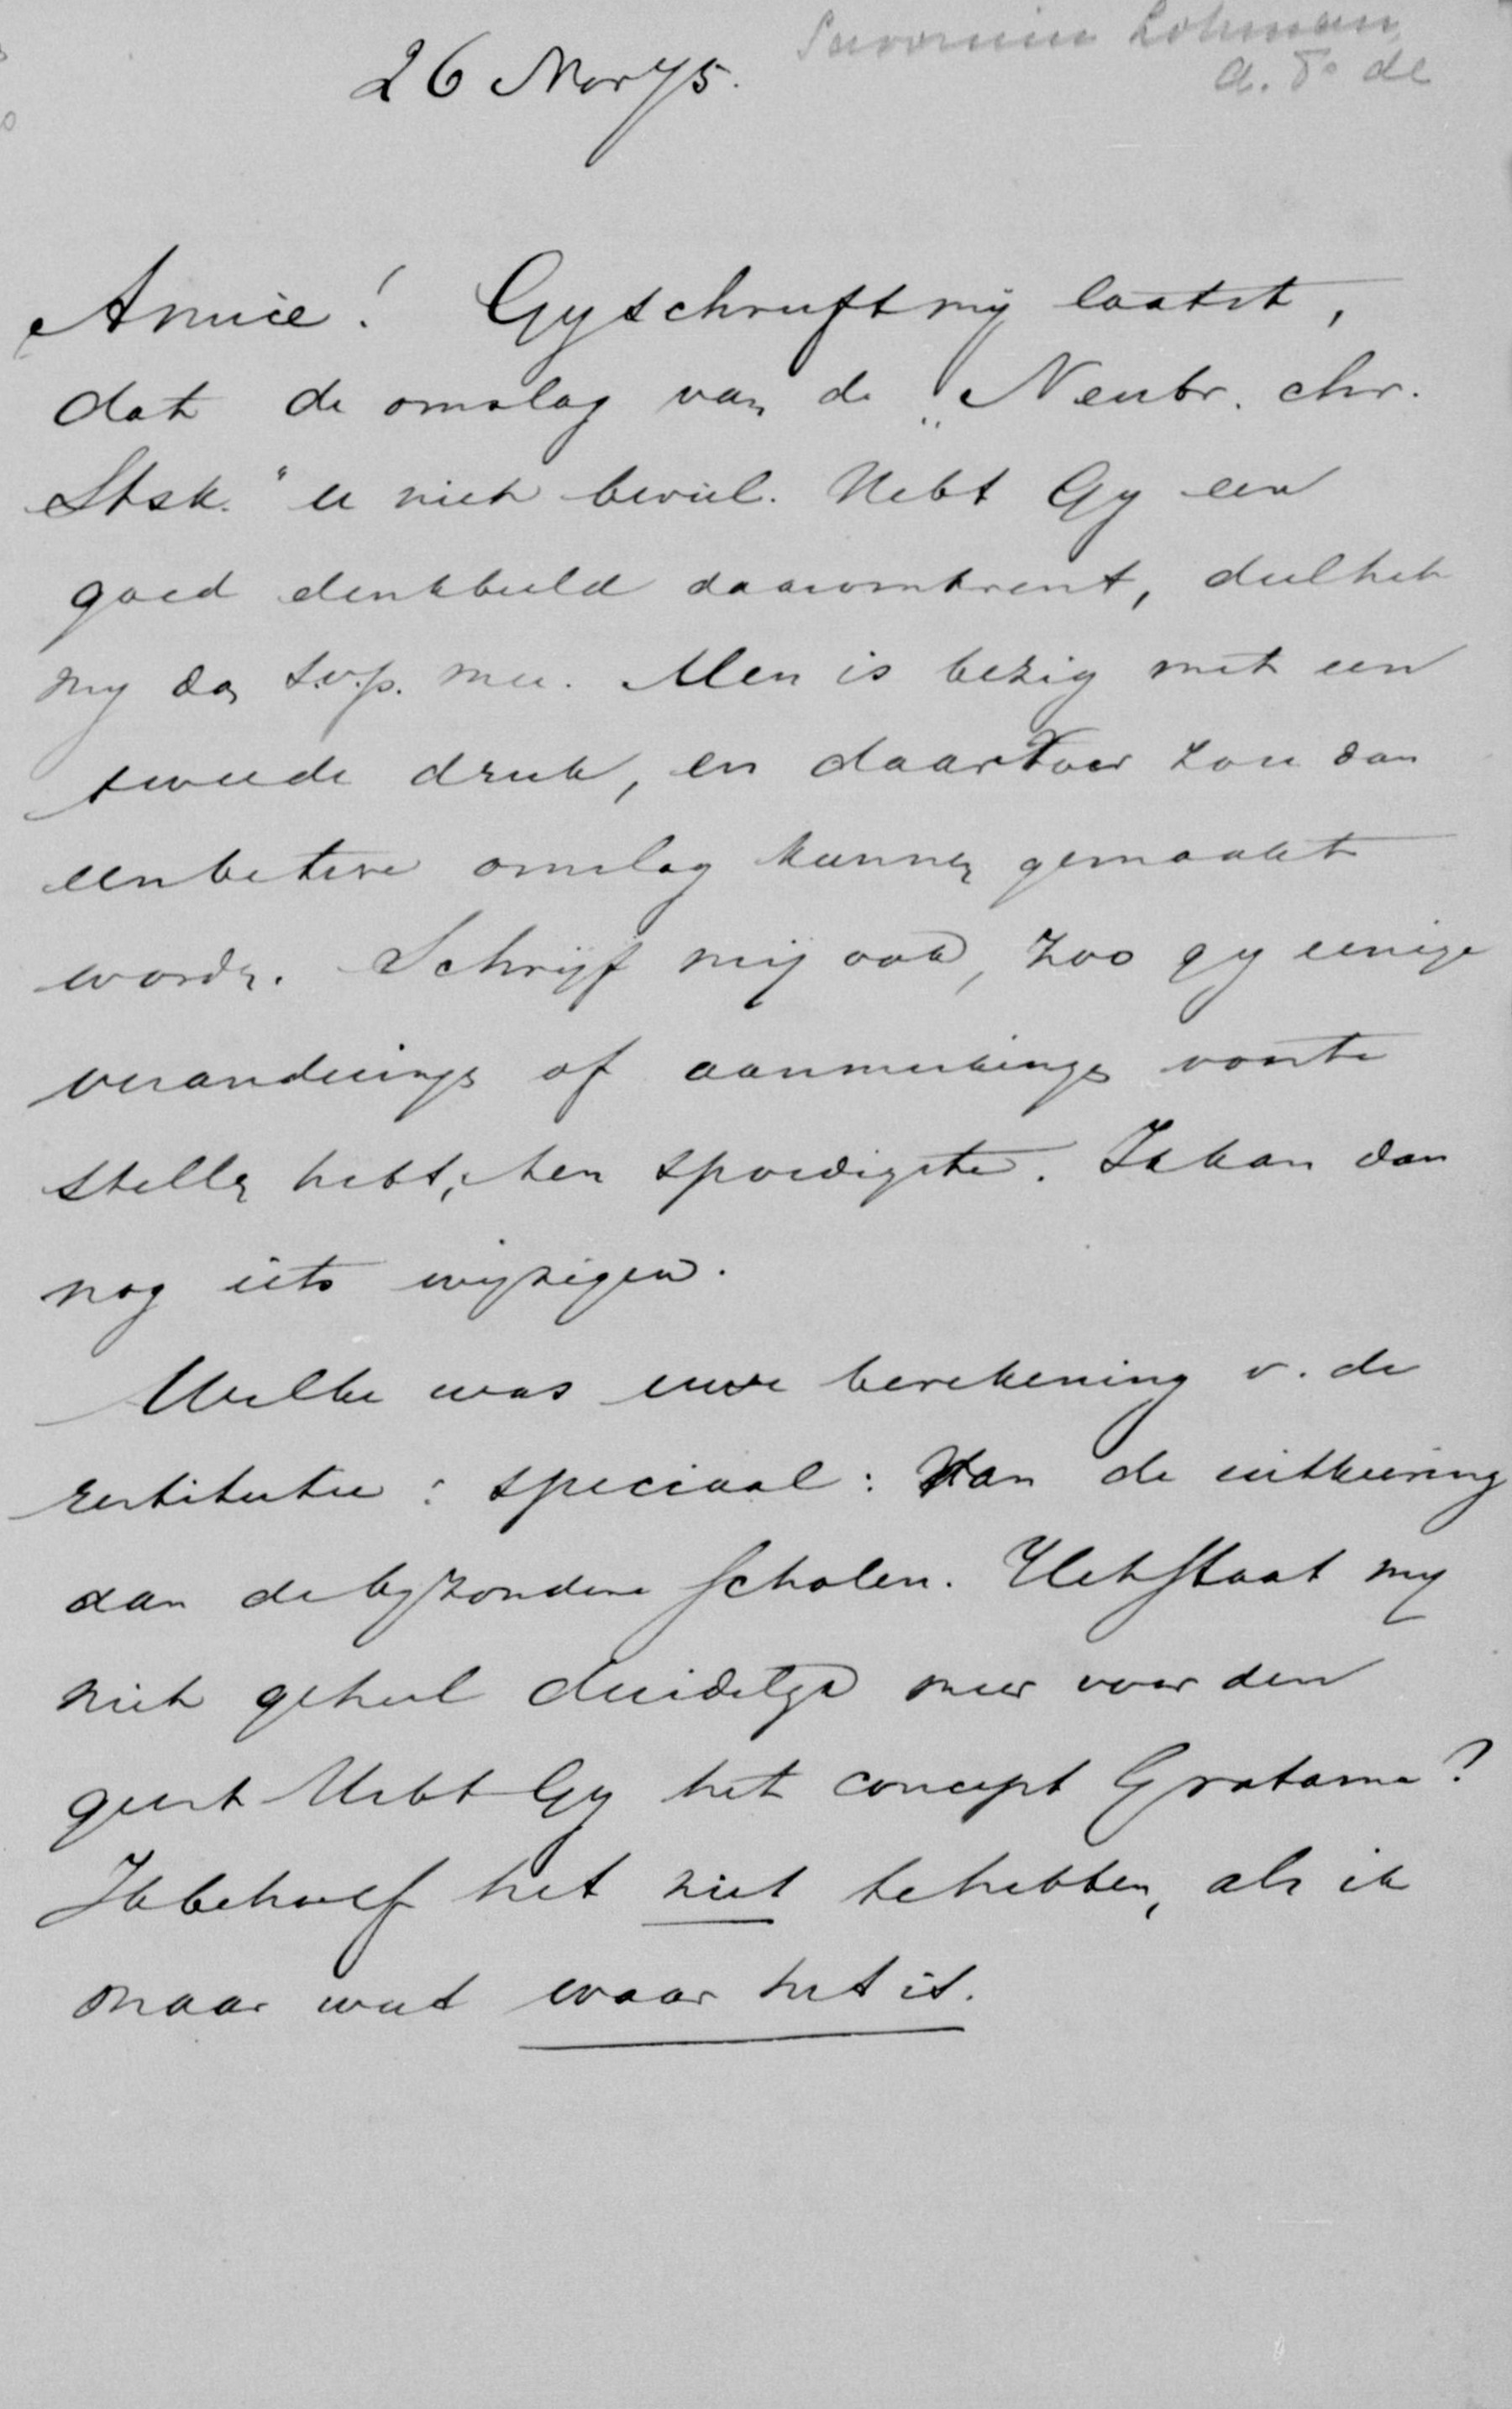 Savornin Lohman,
a. F. de
26 Nov 75.
Amice! Gy schreeft mij laatst,
dat de omslag van de „Neutr. chr.
Stsk." u niet beviel. Hebt Gy een
goed denkbeeld daaromtrent, deel het
my dan s.v.p. mee. Men is bezig met een
tweede druk, en daarvoor zou dan
een betere omslag kunnen gemaakt
worden. Schrijf mij ook, zoo gy eenige
veranderingen of aanmerkingen voor te
stellen hebt, ten spoedigste. Ik kan dan
nog iets wijzigen.
Welke was uwe berekening v. de
restitutie: speciaal: Van de uitkeering
aan de byzondere scholen. Het staat my
niet geheel duidelyk meer voor den
geest Hebt Gy het concept Gratama?
Ik behoef het niet te hebben, als ik
maar weet waar het is.